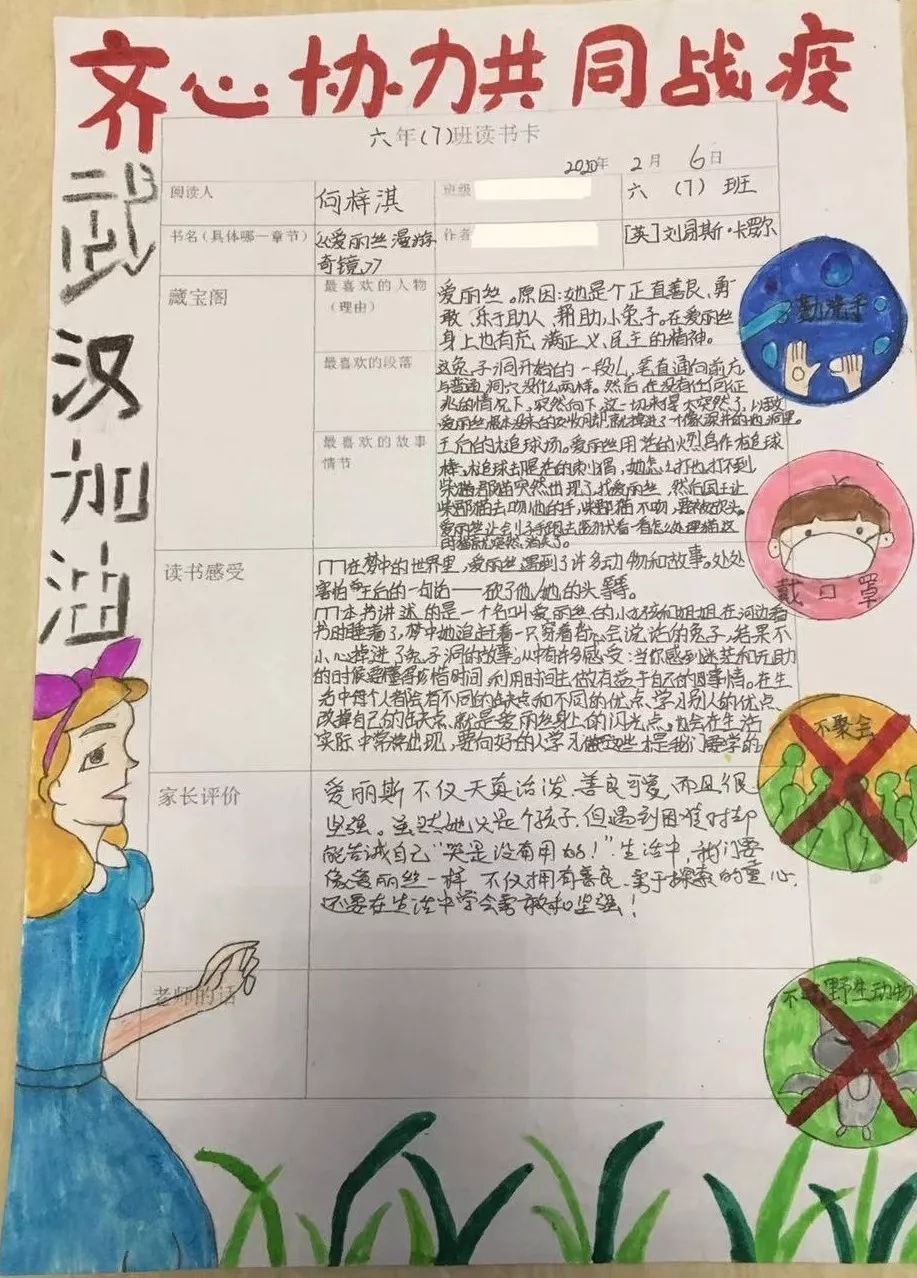 齐心协力共同战疫
武汉加油
六年(7)班读书卡
2020年 2月 6日
阅读人 何梓淇 班级 六 (7) 班
书名(具体哪一章节) 《爱丽丝漫游 作者 [英]刘易斯·卡罗尔
奇镜》
藏宝阁
最喜欢的人物
(理由)
爱丽丝。原因:她是个正直善良、勇
敢、乐于助人、帮助小兔子。在爱丽丝
身上也有充满正义、民主的精神。
最喜欢的段落
这兔子洞开始的一段儿,笔直通向前方,
与普通洞穴没什么两样。然后,在没有任何征
兆的情况下,突然向下,这一切来得太突然了,以致
爱丽丝根本没来的及收脚就掉进了一个像深井的地洞里。
最喜欢的故事
情节
王后的槌球场。爱丽丝用的火烈鸟作槌球
棒,槌球去是的刺猬,她怎么打也打不到
柴郡猫突然出现了找爱丽丝,然后国王让
柴郡猫去吻他的手,柴郡猫不吻,要被砍头。
爱丽丝让刽子手跑去看看怎么处理猫,这
时猫就突然消失了。
读书感受
在梦中的世界里,爱丽丝遇到了许多动物和故事。处处
害怕王后的一句话——砍了他/她的头等等。
本书讲述的是一个名叫爱丽丝的小女孩和姐姐在河边看
书时睡着了,梦中她追赶着一只穿着背心会说话的兔子,结果不
小心掉进了兔子洞的故事。从中有许多感受:当你感到迷茫和无助
的时候要懂得珍惜时间,利用时间去做有益于自己的事情。在生
活中每个人都会有不同的缺点和不同的优点,学习别人的优点,
改掉自己的缺点,就是爱丽丝身上的闪光点。也会在生活
实际中常常出现,要向好的人学习,这些才是我们要学的。
家长评价
爱丽斯不仅天真活泼、善良可爱,而且很
坚强。虽然她只是个孩子,但遇到困难时却
能告诫自己“哭是没有用的!”生活中,我们要
像爱丽丝一样,不仅拥有善良、勇于探索的童心,
还要在生活中学会勇敢和坚强!
老师的话
勤洗手
戴口罩
不聚会
不吃野生动物